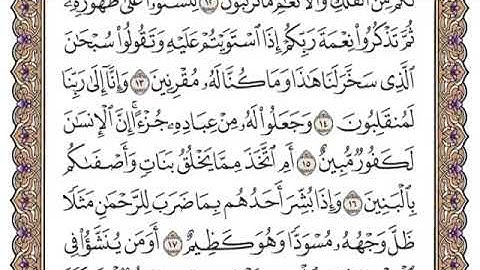 لَكُم مِّنَ ٱلْفُلْكِ وَٱلْأَنْعَٰمِ مَا تَرْكَبُونَ ١٢ لِتَسْتَوُۥا۟ عَلَىٰ ظُهُورِهِۦ
ثُمَّ تَذْكُرُوا۟ نِعْمَةَ رَبِّكُمْ إِذَا ٱسْتَوَيْتُمْ عَلَيْهِ وَتَقُولُوا۟ سُبْحَٰنَ
ٱلَّذِى سَخَّرَ لَنَا هَٰذَا وَمَا كُنَّا لَهُۥ مُقْرِنِينَ ١٣ وَإِنَّآ إِلَىٰ رَبِّنَا
لَمُنقَلِبُونَ ١٤ وَجَعَلُوا۟ لَهُۥ مِنْ عِبَادِهِۦ جُزْءًا ۚ إِنَّ ٱلْإِنسَٰنَ
لَكَفُورٌ مُّبِينٌ ١٥ أَمِ ٱتَّخَذَ مِمَّا يَخْلُقُ بَنَاتٍ وَأَصْفَىٰكُم
بِٱلْبَنِينَ ١٦ وَإِذَا بُشِّرَ أَحَدُهُم بِمَا ضَرَبَ لِلرَّحْمَٰنِ مَثَلًا
ظَلَّ وَجْهُهُۥ مُسْوَدًّا وَهُوَ كَظِيمٌ ١٧ أَوَمَن يُنَشَّؤُا۟ فِى